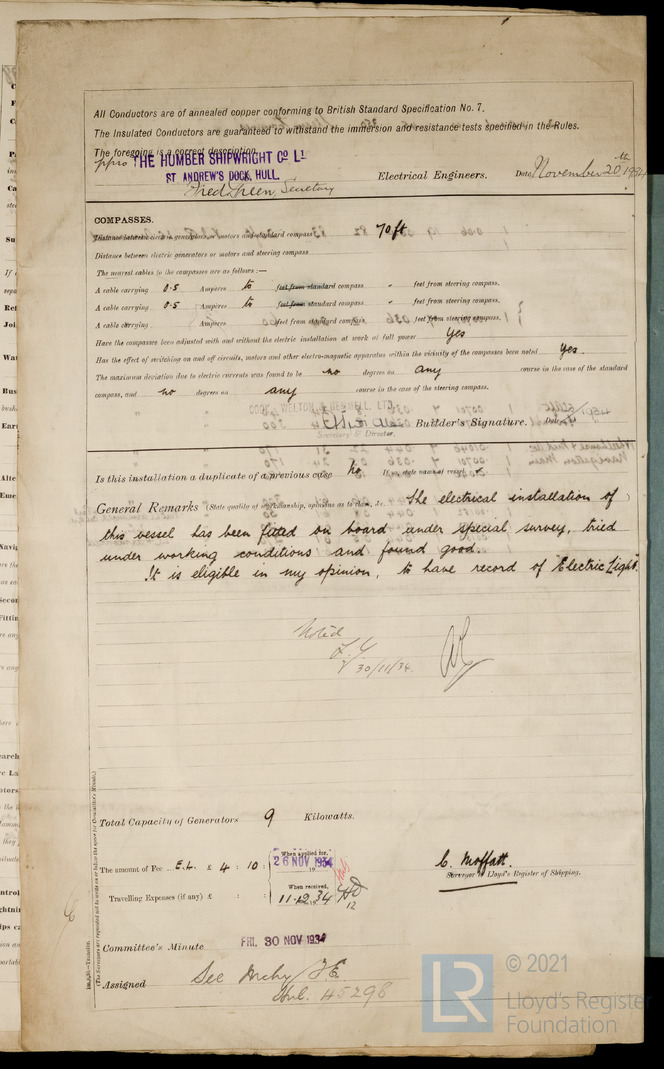 All Conductors are of annealed copper conforming to British Standard Specification No. 7.
The Insulated Conductors are guaranteed to withstand the immersion and resistance tests specified in the Rules.
The foregoing is a correct description.
ppro THE HUMBER SHIPWRIGHT CO LD
ST ANDREW'S DOCK, HULL.
Secretary Electrical Engineers. Date November 20th 1934
COMPASSES.
Distance between electric generators or motors and standard compass 70 ft.
Distance between electric generators or motors and steering compass
The nearest cables to the compasses are as follows:—
A cable carrying 0.5 Amperes to feet from standard compass " feet from steering compass.
A cable carrying 0.5 Amperes to feet from standard compass " feet from steering compass.
A cable carrying Amperes feet from standard compass feet from steering compass.
Have the compasses been adjusted with and without the electric installation at work at full power Yes
Has the effect of switching on and off circuits, motors and other electro-magnetic apparatus within the vicinity of the compasses been noted Yes.
The maximum deviation due to electric currents was found to be no degrees on any course in the case of the standard
compass, and no degrees on any course in the case of the steering compass.
COOK, WELTON & GEMMELL, LTD.
Builder's Signature. Date
Secretary & Director.
Is this installation a duplicate of a previous case No If so, state name of vessel
General Remarks (State quality of workmanship, opinions as to class, &c. The electrical installation of
this vessel has been fitted on board under special survey, tried
under working conditions and found good.
It is eligible in my opinion, to have record of Electric Light.
Noted
30/11/34.
Total Capacity of Generators 9 Kilowatts.
The amount of Fee E.L. £ 4 : 10 : When applied for, 26 NOV 1934
C. Moffatt.
Surveyor to Lloyd's Register of Shipping.
Travelling Expenses (if any) £ : : When received, 11.12.34
12
Committee's Minute FRI. 30 NOV 1934
Assigned See Mchy J.E.
Hul. 45298
(The Surveyors are requested not to write on or below the space for Committee's Minute.)
LR
© 2021
Lloyd's Register
Foundation